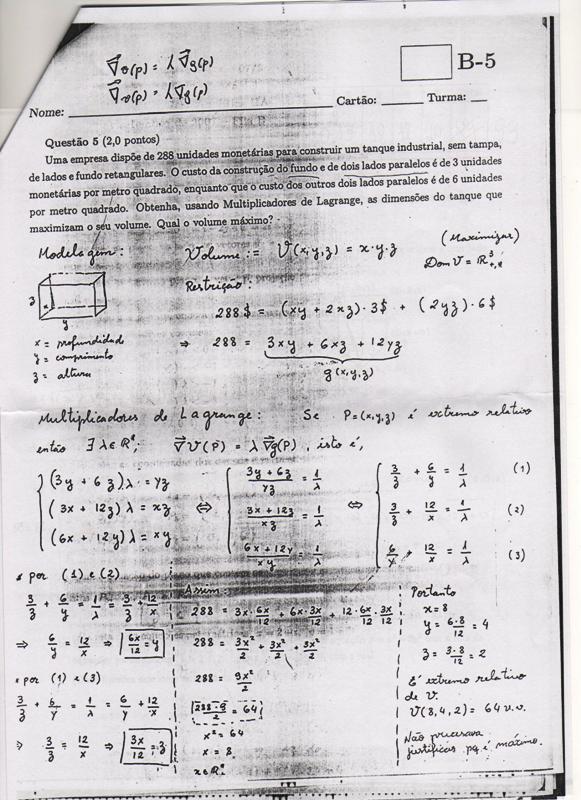 ∇⃗v(p) = λ ∇⃗g(p)
∇⃗v(p) = λ∇⃗g(p)
B-5
Nome: Cartão: Turma:
Questão 5 (2,0 pontos)
Uma empresa dispõe de 288 unidades monetárias para construir um tanque industrial, sem tampa,
de lados e fundo retangulares. O custo da construção do fundo e de dois lados paralelos é de 3 unidades
monetárias por metro quadrado, enquanto que o custo dos outros dois lados paralelos é de 6 unidades
por metro quadrado. Obtenha, usando Multiplicadores de Lagrange, as dimensões do tanque que
maximizam o seu volume. Qual o volume máximo?
Modelagem: Volume := V(x,y,z) = x·y·z (Maximizar)
Dom V = ℝ³₊,*
Restrição:
288 $ = (xy + 2xz)·3$ + (2yz)·6$
⇒ 288 = 3xy + 6xz + 12yz
g(x,y,z)
z x y
x = profundidade
y = comprimento
z = altura
Multiplicadores de Lagrange: Se P=(x,y,z) é extremo relativo
então ∃ λ∈ℝ*; ∇⃗V(P) = λ ∇⃗g(P), isto é,
(3y + 6z)λ = yz ⇔ (3y + 6z)/yz = 1/λ ⇔ 3/z + 6/y = 1/λ (1)
(3x + 12z)λ = xz (3x + 12z)/xz = 1/λ 3/z + 12/x = 1/λ (2)
(6x + 12y)λ = xy (6x + 12y)/xy = 1/λ 6/y + 12/x = 1/λ (3)
* por (1) e (2)
3/z + 6/y = 1/λ = 3/z + 12/x
⇒ 6/y = 12/x ⇒ 6x/12 = y
* por (1) e (3)
3/z + 6/y = 1/λ = 6/y + 12/x
⇒ 3/z = 12/x ⇒ 3x/12 = z
Assim:
288 = 3x·6x/12 + 6x·3x/12 + 12·6x/12·3x/12
288 = 3x²/2 + 3x²/2 + 3x²/2
288 = 9x²/2
x² = 64
x = 8
Portanto
x = 8
y = 6·8/12 = 4
z = 3·8/12 = 2
É extremo relativo
de V.
V(8,4,2) = 64 u.v.
Não precisava
justificar pq é máximo.